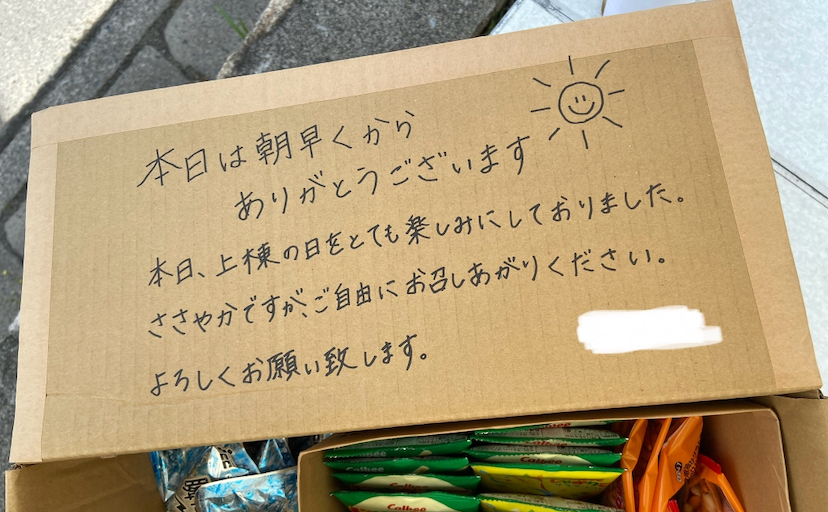 本日は朝早くから
ありがとうございます
本日、上棟の日をとても楽しみにしておりました。
ささやかですが、ご自由にお召しあがりください。
よろしくお願い致します。
Calbee
Calbee
Calbee
Calbee